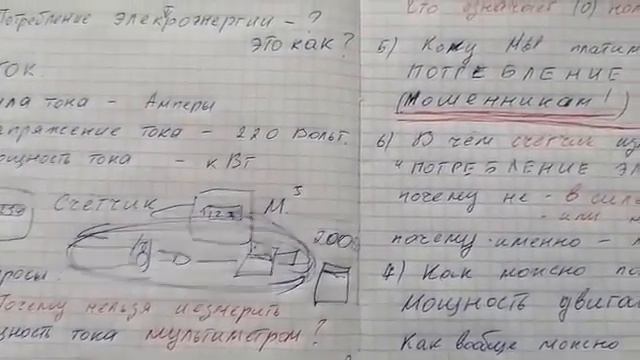 Потребление электроэнергии - ?
это как?
ток.
сила тока - Амперы
напряжение тока - 220 Вольт.
мощность тока - кВт
Счетчик
М.
200
Почему нельзя измерить
мощность тока мультиметром?
Что означает (0)
5) Кому мы платим
ПОТРЕБЛЕНИЕ
(Мошенникам!
6) В чём счетчик
"ПОТРЕБЛЕНИЕ ЭЛ
почему не - в сил
- или
почему именно -
7) Как можно по
Мощность двига
Как вообще можно